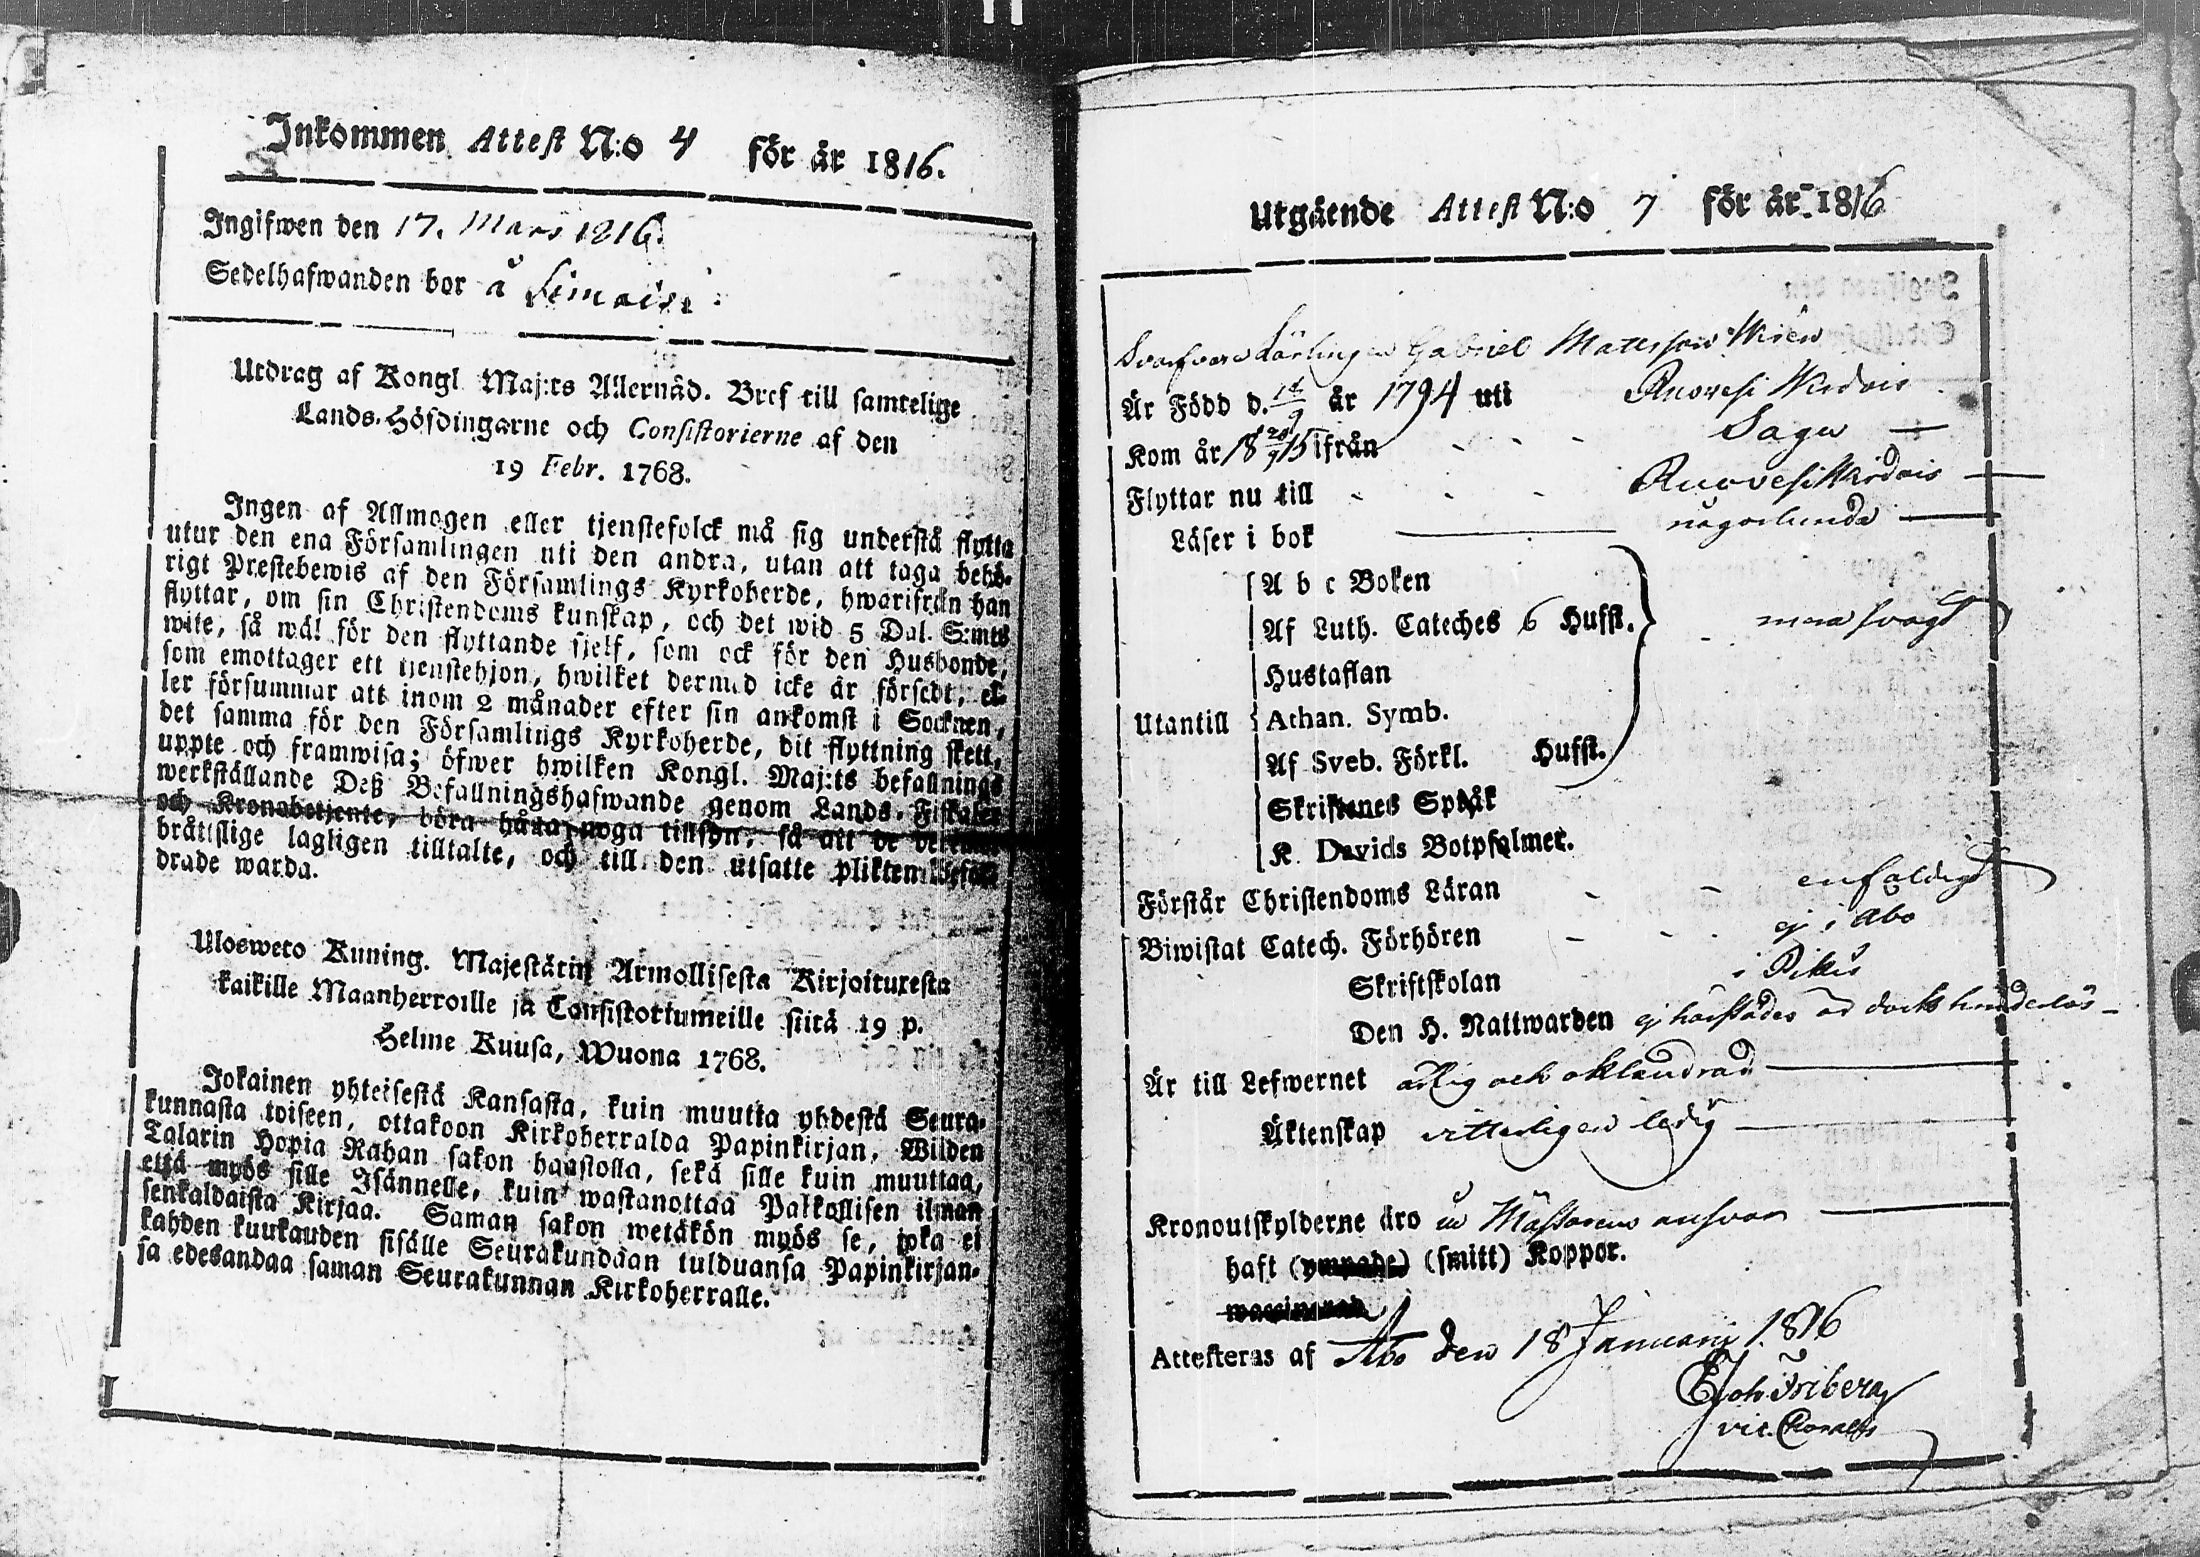 Inkommen Attest N:o 4 för år 1816.
Ingifwen den 17. Mars 1816.
Sedelhafwanden bor å Simaisi
Utdrag af Kongl. Maj:ts Allernåd. Bref till samtelige
Lands-Höfdingarne och Consistorierne af den
19 Febr. 1768.
Ingen af Allmogen eller tjenstefolck må sig understå flytta
utur den ena Församlingen uti den andra, utan att taga behö-
rigt Prestebewis af den Församlings Kyrkoherde, hwarifrån han
flyttar, om sin Christendoms kunskap, och det wid 5 Dal. S:mts
wite, så wäl för den flyttande sjelf, som ock för den Husbonde,
som emottager ett tjenstehjon, hwilket dermed icke är försedt, el-
ler försummar att inom 2 månader efter sin ankomst i Socknen,
det samma för den Församlings Kyrkoherde, dit flyttning skett,
uppte och framwisa; öfwer hwilken Kongl. Maj:ts befallnings
werkställande Deß Befallningshafwande genom Lands-Fiskaler
och Kronobetjente, böra hålla noga tillsyn, så att de
brättslige lagligen tilltalte, och till den utsatte plikten befor-
drade warda.
Ulosweto Kuning. Majestätin Armollisesta Kirjoituxesta
kaikille Maanherroille ja Consistoriumeille siitä 19 p.
Helme Kuusa, Wuona 1768.
Jokainen yhteisestä Kansasta, kuin muutta yhdestä Seura-
kunnasta toiseen, ottakoon Kirkoherralda Papinkirjan, Wiiden
Talarin Hopia Rahan sakon haastolla, sekä sille kuin muuttaa,
että myös sille Isännelle, kuin wastanottaa Palkollisen ilman
senkaldaista Kirjaa. Saman sakon wetäkön myös se, joka ei
kahden kuukauden sisälle Seurakundaan tulduansa Papinkirjan-
sa edesandaa saman Seurakunnan Kirkoherralle.
Utgående Attest N:o 7 för år 1816
Svarfvare Lärlingen Gabriel Mattsson Wirén
Är Född d. 14/9 år 1794 uti Ruovesi Wirdois
Kom år 18 20/9 15 ifrån Sagu
Flyttar nu till Ruovesi Wirdois
Läser i bok någorlunda
Utantill
A b c Boken
Af Luth. Cateches 6 Hufst. men svagt
Hustaflan
Athan. Symb.
Af Sveb. Förkl. Hufst.
Skriftenes Språk
K. Davids Botpsalmer.
Förstår Christendoms Läran enfaldigt
Biwistat Catech. Förhören ej i Abo
Skriftskolan i Pikis
Den H. Nattwarden ej härstädes är dock hinderlös
Är till Lefwernet ärlig och oklandrad
Äktenskap vitterligen ledig
Kronoutskylderne äro å Mästarens ansvar
haft (ympade) (smitt) Koppor.
waccinerad
Attesteras af Åbo den 18 Januarii 1816
Joh. Friberg
vic.